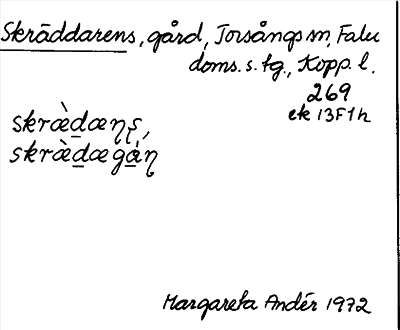 Skräddarens, gård, Torsångs sn, Falu
doms. s. tg., Kopp. l.
269
ek 13F1h
skræ̀dæɳʂ,
skræ̀dægàɳ
Margareta Andér 1972